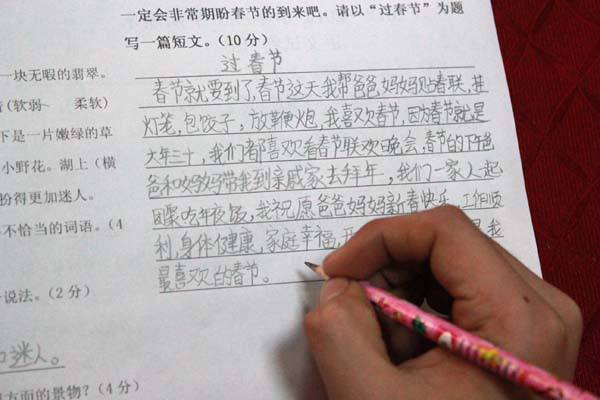 一定会非常期盼春节的到来吧。请以“过春节”为题
写一篇短文。(10 分)
过春节
春节就要到了,春节这天我帮爸爸妈妈贴春联,挂
灯笼,包饺子,放鞭火炮,我喜欢春节,因为春节就是
大年三十,我们都喜欢看春节联欢晚会,春节的下午爸
爸和妈妈带我到亲戚家去拜年,我们一家人起
团聚吃年夜饭,我祝愿爸爸妈妈新春快乐,工作顺
利,身体健康,家庭幸福,是我
最喜欢的春节。
一块无暇的翡翠。
(软弱 柔软)
下是一片嫩绿的草
小野花。湖上(横
扮得更加迷人。
不恰当的词语。(4
说法。(2 分)
迷人。
方面的景物?(4 分)